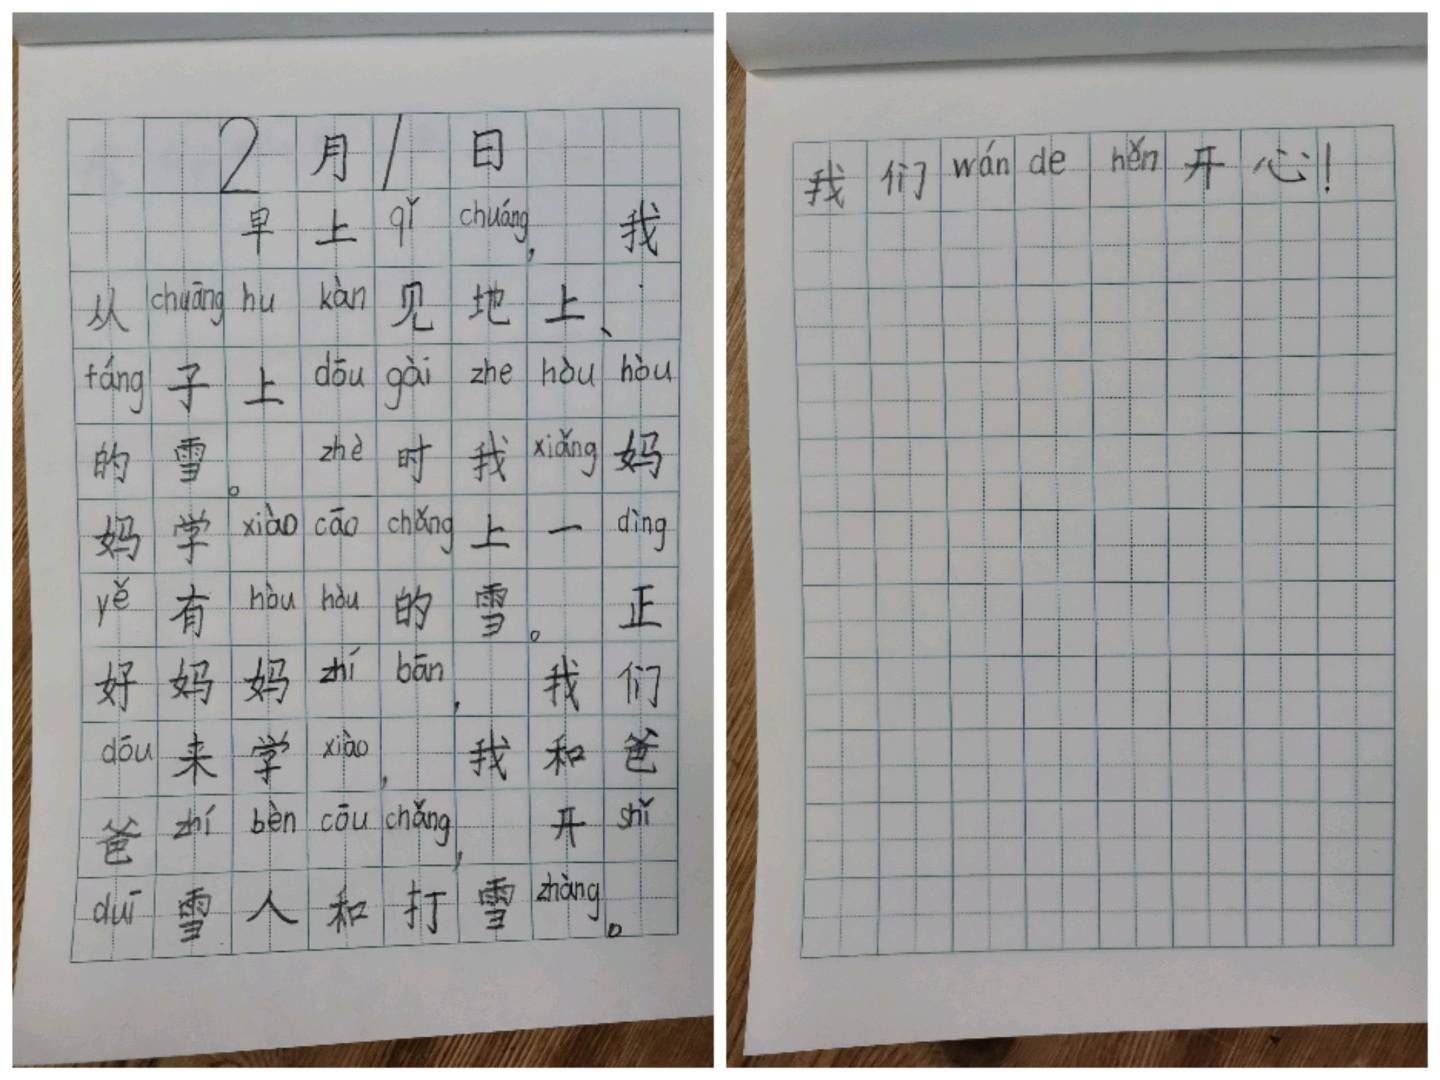 2月1日
早上qǐ chuáng，我
从chuāng hu kàn见地上、
táng子上dōu gài zhe hòu hòu
的雪。zhè时我xiǎng妈
妈学xiào cāo chǎng上一dìng
yě有hòu hòu的雪。正
好妈妈zhí bān，我们
dōu来学xiào，我和爸
爸zhí bèn cōu chǎng，开shǐ
duī雪人和打雪zhàng。
我们wán de hěn开心！